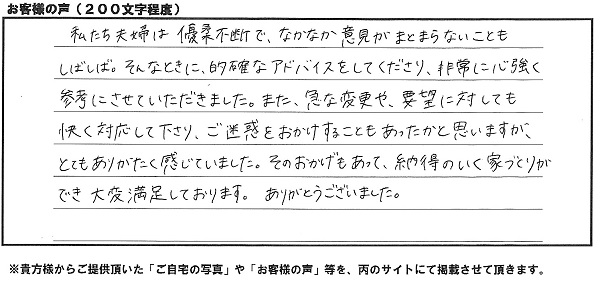 お客様の声（２００文字程度）
私たち夫婦は優柔不断で、なかなか意見がまとまらないことも
しばしば。そんなときに、的確なアドバイスをしてくださり、非常に心強く
参考にさせていただきました。また、急な変更や、要望に対しても
快く対応して下さり、ご迷惑をおかけすることもあったかと思いますが、
とてもありがたく感じていました。そのおかげもあって、納得のいく家づくりが
でき大変満足しております。ありがとうございました。
※貴方様からご提供頂いた「ご自宅の写真」や「お客様の声」等を、丙のサイトにて掲載させて頂きます。